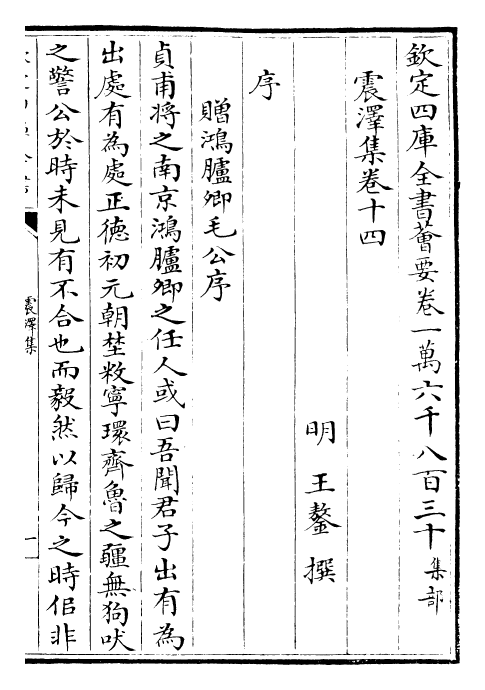 欽定四庫全書薈要卷一萬六千八百三十 集部
震澤集卷十四
明 王鏊 撰
序
贈鴻臚卿毛公序
貞甫將之南京鴻臚卿之任人或曰吾聞君子出有為
出處有為處正德初元朝埜敉寧環齊魯之疆無狗吠
之警公於時未見有不合也而毅然以歸今之時佀非
震澤集
一